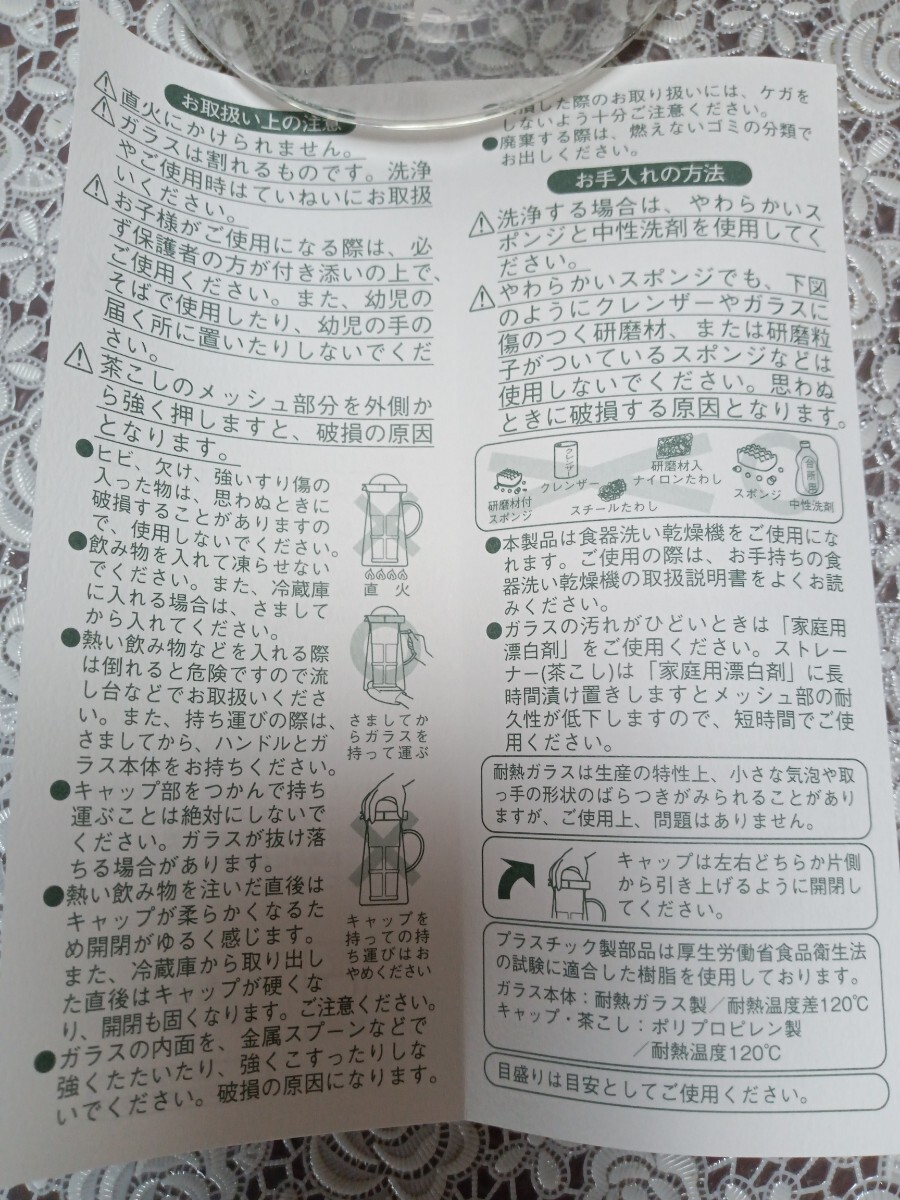 お取扱い上の注意
直火にかけられません。
ガラスは割れるものです。洗浄
やご使用時はていねいにお取扱
いください。
お子様がご使用になる際は、必
ず保護者の方が付き添いの上で、
ご使用ください。また、幼児の
そばで使用したり、幼児の手の
届く所に置いたりしないでくだ
さい。
茶こしのメッシュ部分を外側か
ら強く押しますと、破損の原因
となります。
●ヒビ、欠け、強いすり傷の
入った物は、思わぬときに
破損することがありますの
で、使用しないでください。
●飲み物を入れて凍らせない
でください。また、冷蔵庫
に入れる場合は、さまして
から入れてください。
●熱い飲み物などを入れる際
は倒れると危険ですので流
し台などでお取扱いくださ
い。また、持ち運びの際は、
さましてから、ハンドルとガ
ラス本体をお持ちください。
●キャップ部をつかんで持ち
運ぶことは絶対にしないで
ください。ガラスが抜け落
ちる場合があります。
●熱い飲み物を注いだ直後は
キャップが柔らかくなるた
め開閉がゆるく感じます。
また、冷蔵庫から取り出し
た直後はキャップが硬くな
り、開閉も固くなります。ご注意ください。
●ガラスの内面を、金属スプーンなどで
強くたたいたり、強くこすったりしな
いでください。破損の原因になります。
直火
さましてか
らガラスを
持って運ぶ
キャップを
持っての持
ち運びはお
やめください
した際のお取り扱いには、ケガを
しないよう十分ご注意ください。
●廃棄する際は、燃えないゴミの分類で
お出しください。
お手入れの方法
洗浄する場合は、やわらかいス
ポンジと中性洗剤を使用してく
ださい。
やわらかいスポンジでも、下図
のようにクレンザーやガラスに
傷のつく研磨材、または研磨粒
子がついているスポンジなどは
使用しないでください。思わぬ
ときに破損する原因となります。
研磨材付
スポンジ
クレンザー
クレンザー
スチールたわし
研磨材入
ナイロンたわし
スポンジ
台所用
中性洗剤
●本製品は食器洗い乾燥機をご使用にな
れます。ご使用の際は、お手持ちの食
器洗い乾燥機の取扱説明書をよくお読
みください。
●ガラスの汚れがひどいときは「家庭用
漂白剤」をご使用ください。ストレー
ナー(茶こし)は「家庭用漂白剤」に長
時間漬け置きしますとメッシュ部の耐
久性が低下しますので、短時間でご使
用ください。
耐熱ガラスは生産の特性上、小さな気泡や取
っ手の形状のばらつきがみられることがあり
ますが、ご使用上、問題はありません。
キャップは左右どちらか片側
から引き上げるように開閉し
てください。
プラスチック製部品は厚生労働省食品衛生法
の試験に適合した樹脂を使用しております。
ガラス本体：耐熱ガラス製／耐熱温度差120℃
キャップ・茶こし：ポリプロピレン製
／耐熱温度120℃
目盛りは目安としてご使用ください。